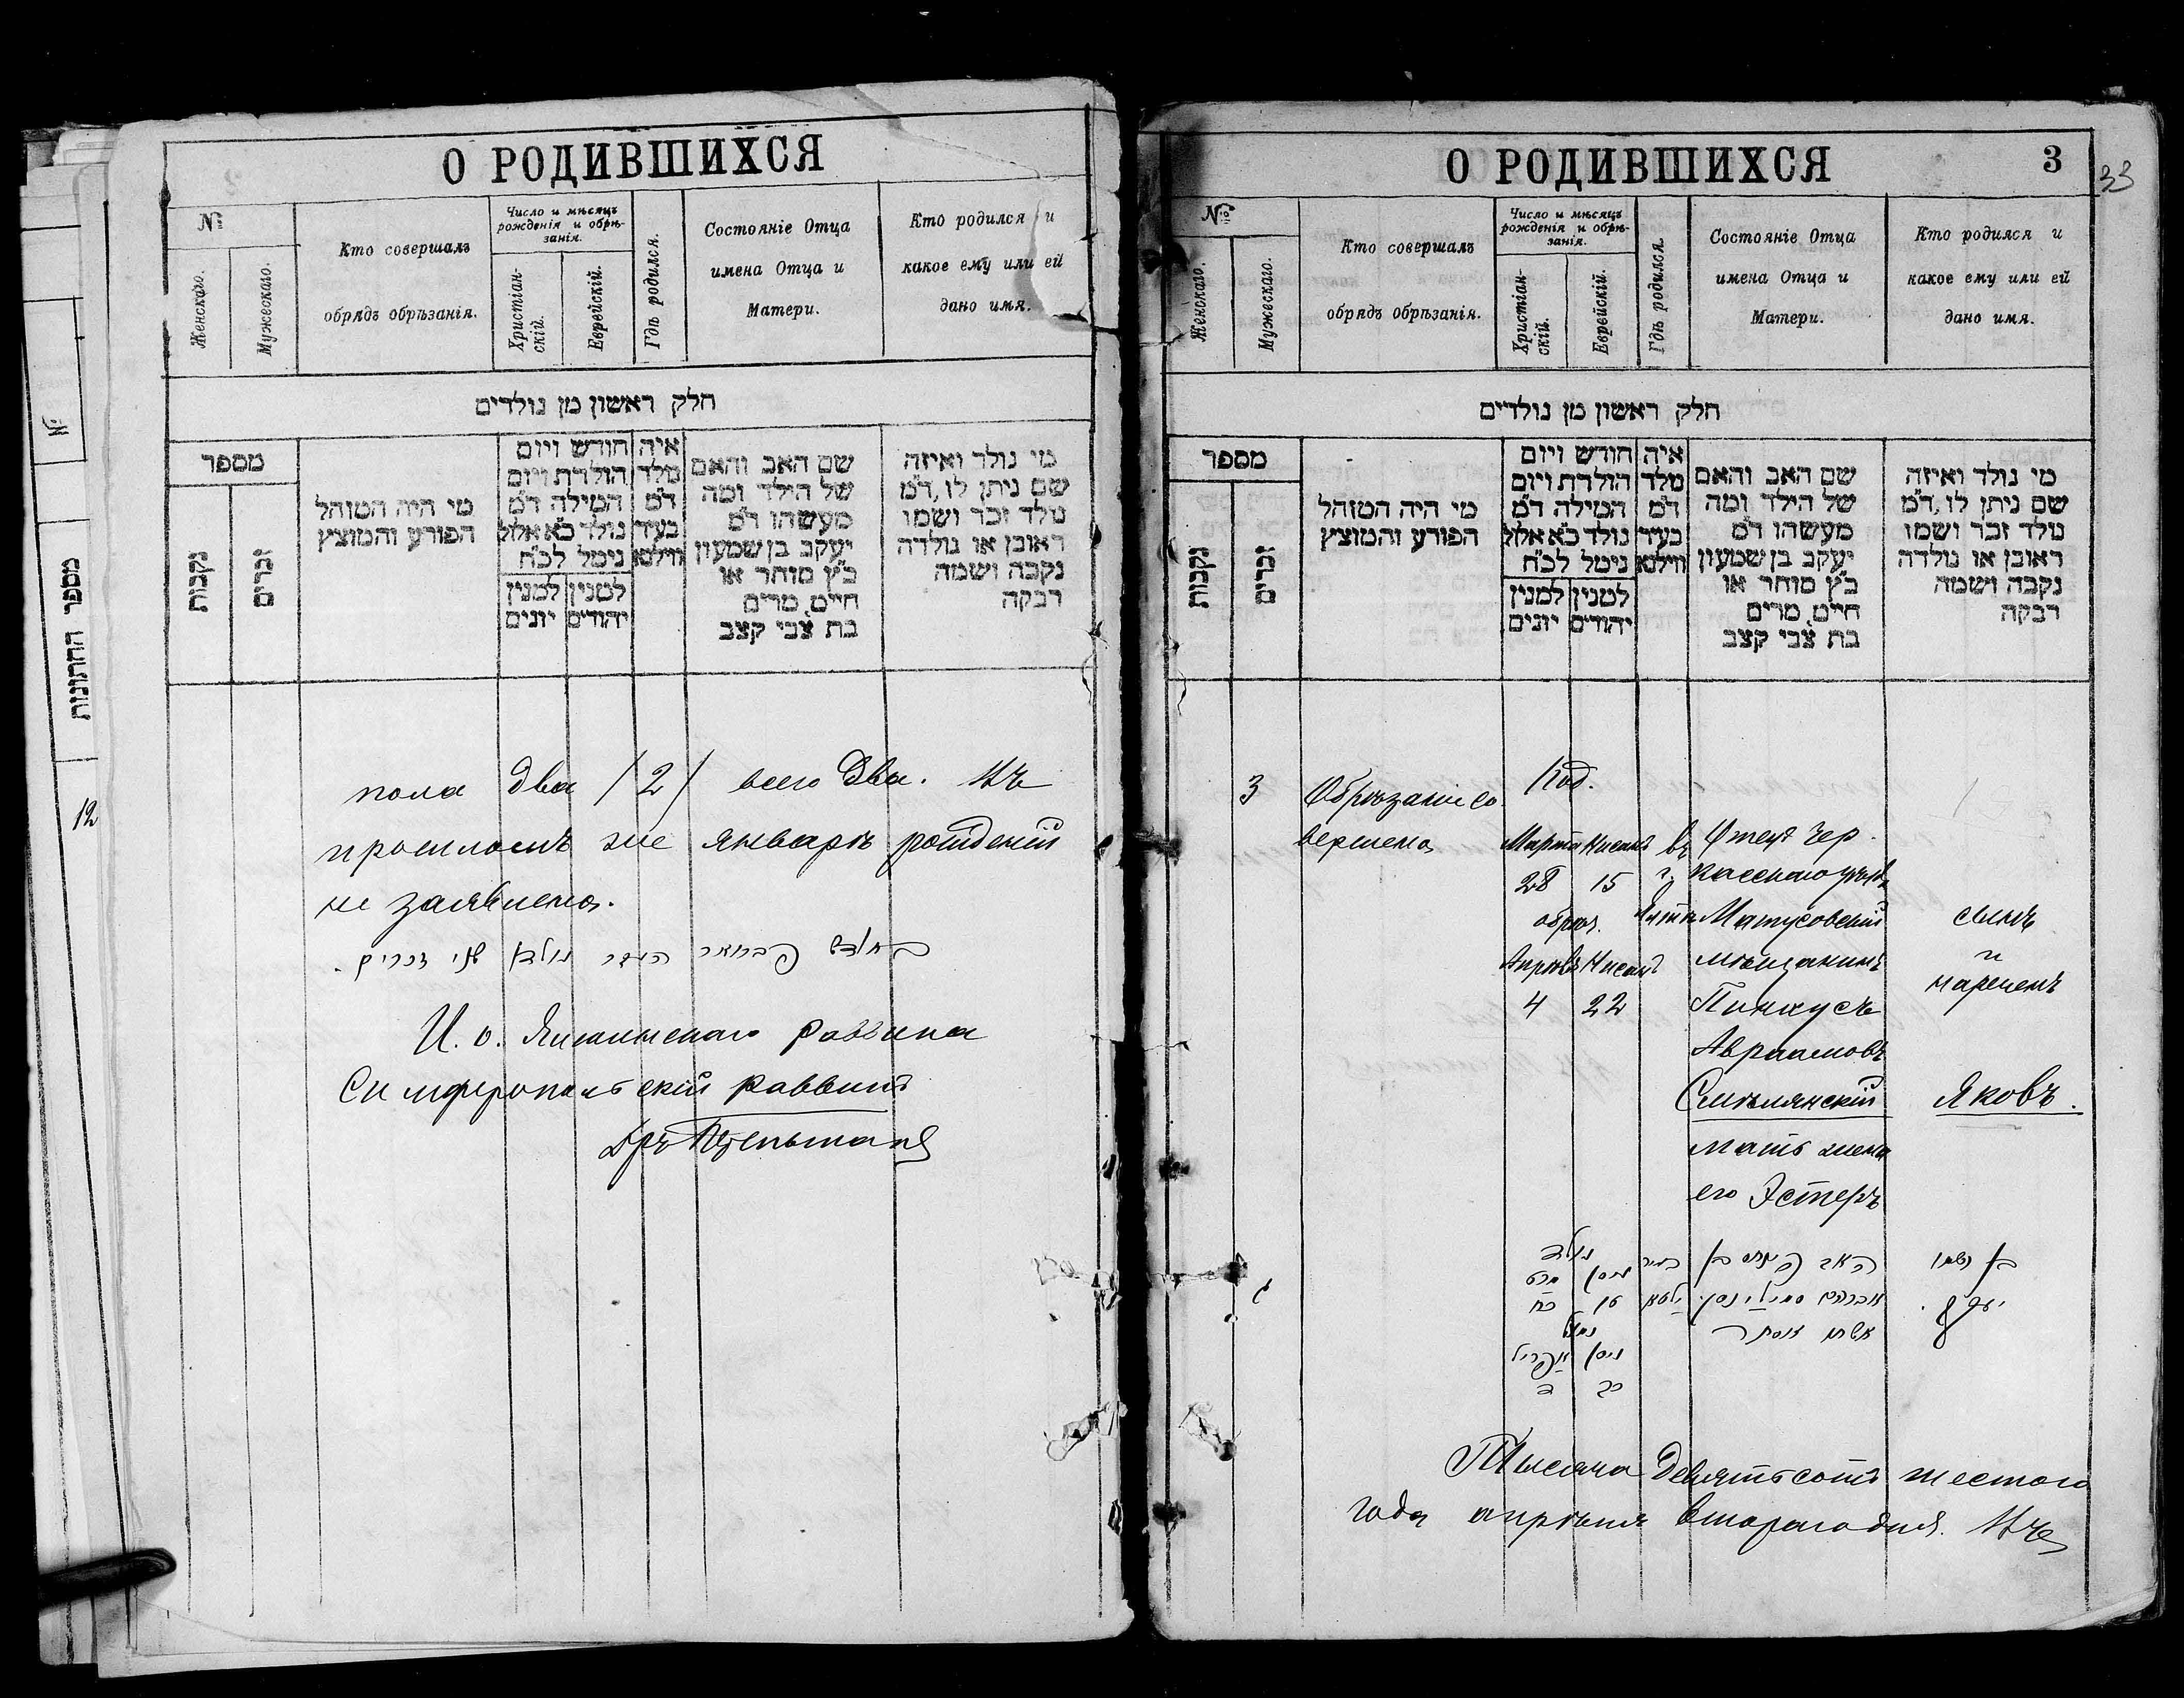 О РОДИВШИХСЯ
№
Женскаго.
Мужескаго.
Кто совершалъ
обрядъ обрѣзанія.
Число и мѣсяцъ
рожденія и обрѣ-
занія.
Христіан-
скій.
Еврейскій.
Гдѣ родился.
Состояніе Отца
имена Отца и
Матери.
Кто родился и
какое ему или ей
дано имя.
חלק ראשון מן נולדים
מספר
נקבות
זכרים
מי היה המוהל
הפורע והמוצץ
חודש ויום
הולדת ויום
המילה ד"מ
נולד כ"א אלול
נימל לכ"ח
למנין יהודים
למנין יונים
איה
מלד
ד"מ
בעיר
ווילנא
שם האב והאם
של הילד ומה
מעשהו ד"מ
יעקב בן שמעון
כ"ץ סוחר או
חייט, מרים
בת צבי קצב
מי נולד ואיזה
שם ניתן לו, ד"מ
נולד זכר ושמו
ראובן או נולדה
נקבה ושמה
רבקה
пола два /2/ всего два. Въ
прошломъ же январѣ рожденій
не заявлено.
בחודש פברואר העבר נולדו שני זכרים.
И. о. Ялтинскаго раввина
Симферопольскій раввинъ
№
מספר החתונות
12
О РОДИВШИХСЯ
3
33
№
Женскаго.
Мужескаго.
Кто совершалъ
обрядъ обрѣзанія.
Число и мѣсяцъ
рожденія и обрѣ-
занія.
Христіан-
скій.
Еврейскій.
Гдѣ родился.
Состояніе Отца
имена Отца и
Матери.
Кто родился и
какое ему или ей
дано имя.
חלק ראשון מן נולדים
מספר
נקבות
זכרים
מי היה המוהל
הפורע והמוצץ
חודש ויום
הולדת ויום
המילה ד"מ
נולד כ"א אלול
נימל לכ"ח
למנין יהודים
למנין יונים
איה
מלד
ד"מ
בעיר
ווילנא
שם האב והאם
של הילד ומה
מעשהו ד"מ
יעקב בן שמעון
כ"ץ סוחר או
חייט, מרים
בת צבי קצב
מי נולד ואיזה
שם ניתן לו, ד"מ
נולד זכר ושמו
ראובן או נולדה
נקבה ושמה
רבקה
3
Обрѣзаніе со
вершено
Род.
Марта Нисанъ
28 15
обрѣз.
Апрѣль Нисанъ
4 22
въ
г.
Ялтѣ
Отецъ Чер
касскаго уѣзда
Матусовскій
мѣщанинъ
Пинкусъ
Авраамовъ
Смѣлянскій
мать жена
его Эстеръ
сынъ
и
нареченъ
Яковъ.
נולד
ניסן מרט
טו כח
נמול
ניסן אפריל
כב ד
בעיר
ילטא
האב פינחס בן
אברהם סמילינסקי
אשתו אסתר
בן ושמו
יעקב.
Тысяча девятьсотъ шестого
года апрѣля второго дня. Въ